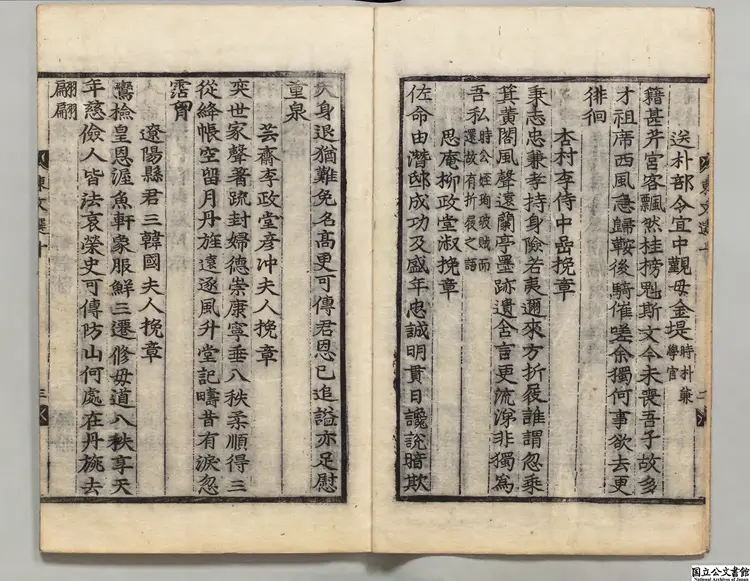 東文選十
送朴部令宜中覲母金堤 時朴兼
學官
籍甚芹宮客飄然桂榜魁斯文今未喪吾子故多
才祖席西風急歸鞍後騎催嗟余獨何事欲去更
徘徊
杏村李侍中嵒挽章
秉志忠兼孝持身險若夷邇來方折屐誰謂忽乘
箕黃閣風聲還蘭亭墨跡遺含言更流涕非獨爲
吾私 時公姪珣破賊而
還故有折屐之語
思庵柳政堂淑挽章
佐命由潛邸成功及盛年忠誠明貫日讒說暗欺
天身退猶難免名高更可傳君恩已追諡亦足慰
重泉
芸齋李政堂彦冲夫人挽章
奕世家聲著疏封婦德崇康寧垂八秩柔順得三
從絳帳空留月丹旌遠逐風升堂記疇昔有淚忽
霑胷
遼陽縣君三韓國夫人挽章
鸞撿皇恩渥魚軒象服鮮三遷修母道八秩享天
年慈儉人皆法哀榮史可傳防山何處在丹旐去
翩翩
東文選十
三
国立公文書館
National Archives of Japan